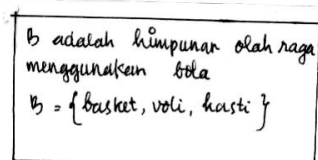 B adalah himpunan olah raga
menggunakan bola
B = {basket, voli, kasti}